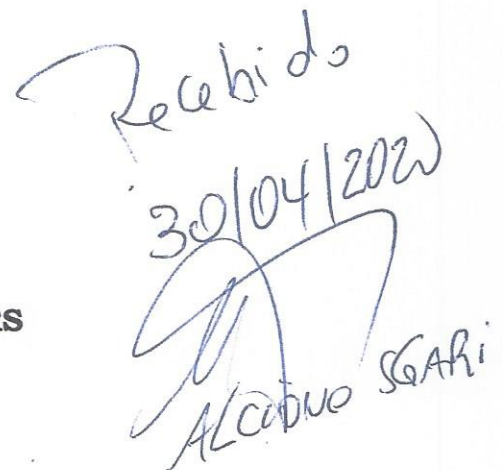 Recebido
30/04/2020
RS
ALCIDINO SGARI